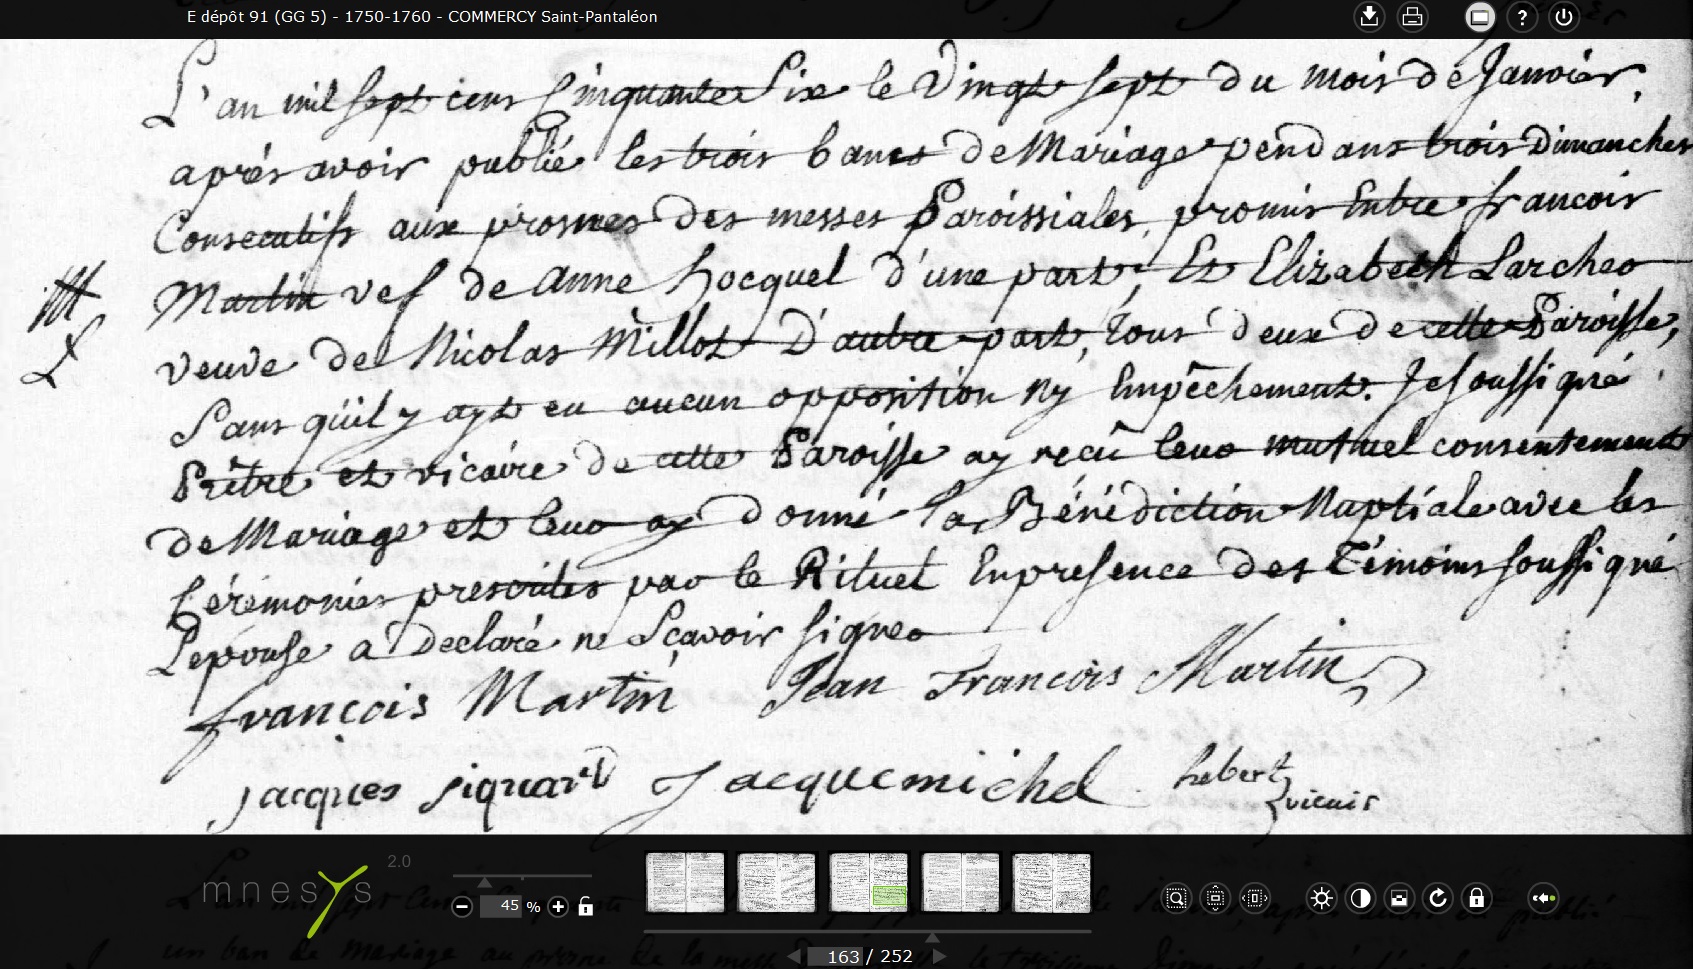 E dépôt 91 (GG 5) - 1750-1760 - COMMERCY Saint-Pantaléon
L'an mil sept cens Cinquante Six le Vingt sept du mois de Janvier,
après avoir publié les trois bancs de Mariage pendans trois Dimanches
Consecutifs aux prosnes des messes Paroissiales, promis Entre francois
Martin vef de Anne Hocquel d'une part, Et Elizabeth Larcher
veuve de Nicolas Millot D'autre part, Tous deux de cette Paroisse,
M
L
Sans qu'il y ayt eu aucun opposition ny Empêchement. Je soussigné
Prêtre et vicaire de cette Paroisse ay reçû leur mutuel consentement
de Mariage et leur ay donné la Bénédiction Nuptiale avec les
Cérémonies prescrites par le Rituel En presence des Témoins soussigné
L'epouse a Declaré ne Sçavoir signer
françois Martin Jean Francois Martin
Jacques siquard Jacquemichel hebert
vicair
mnesys 2.0
45 %
163 / 252